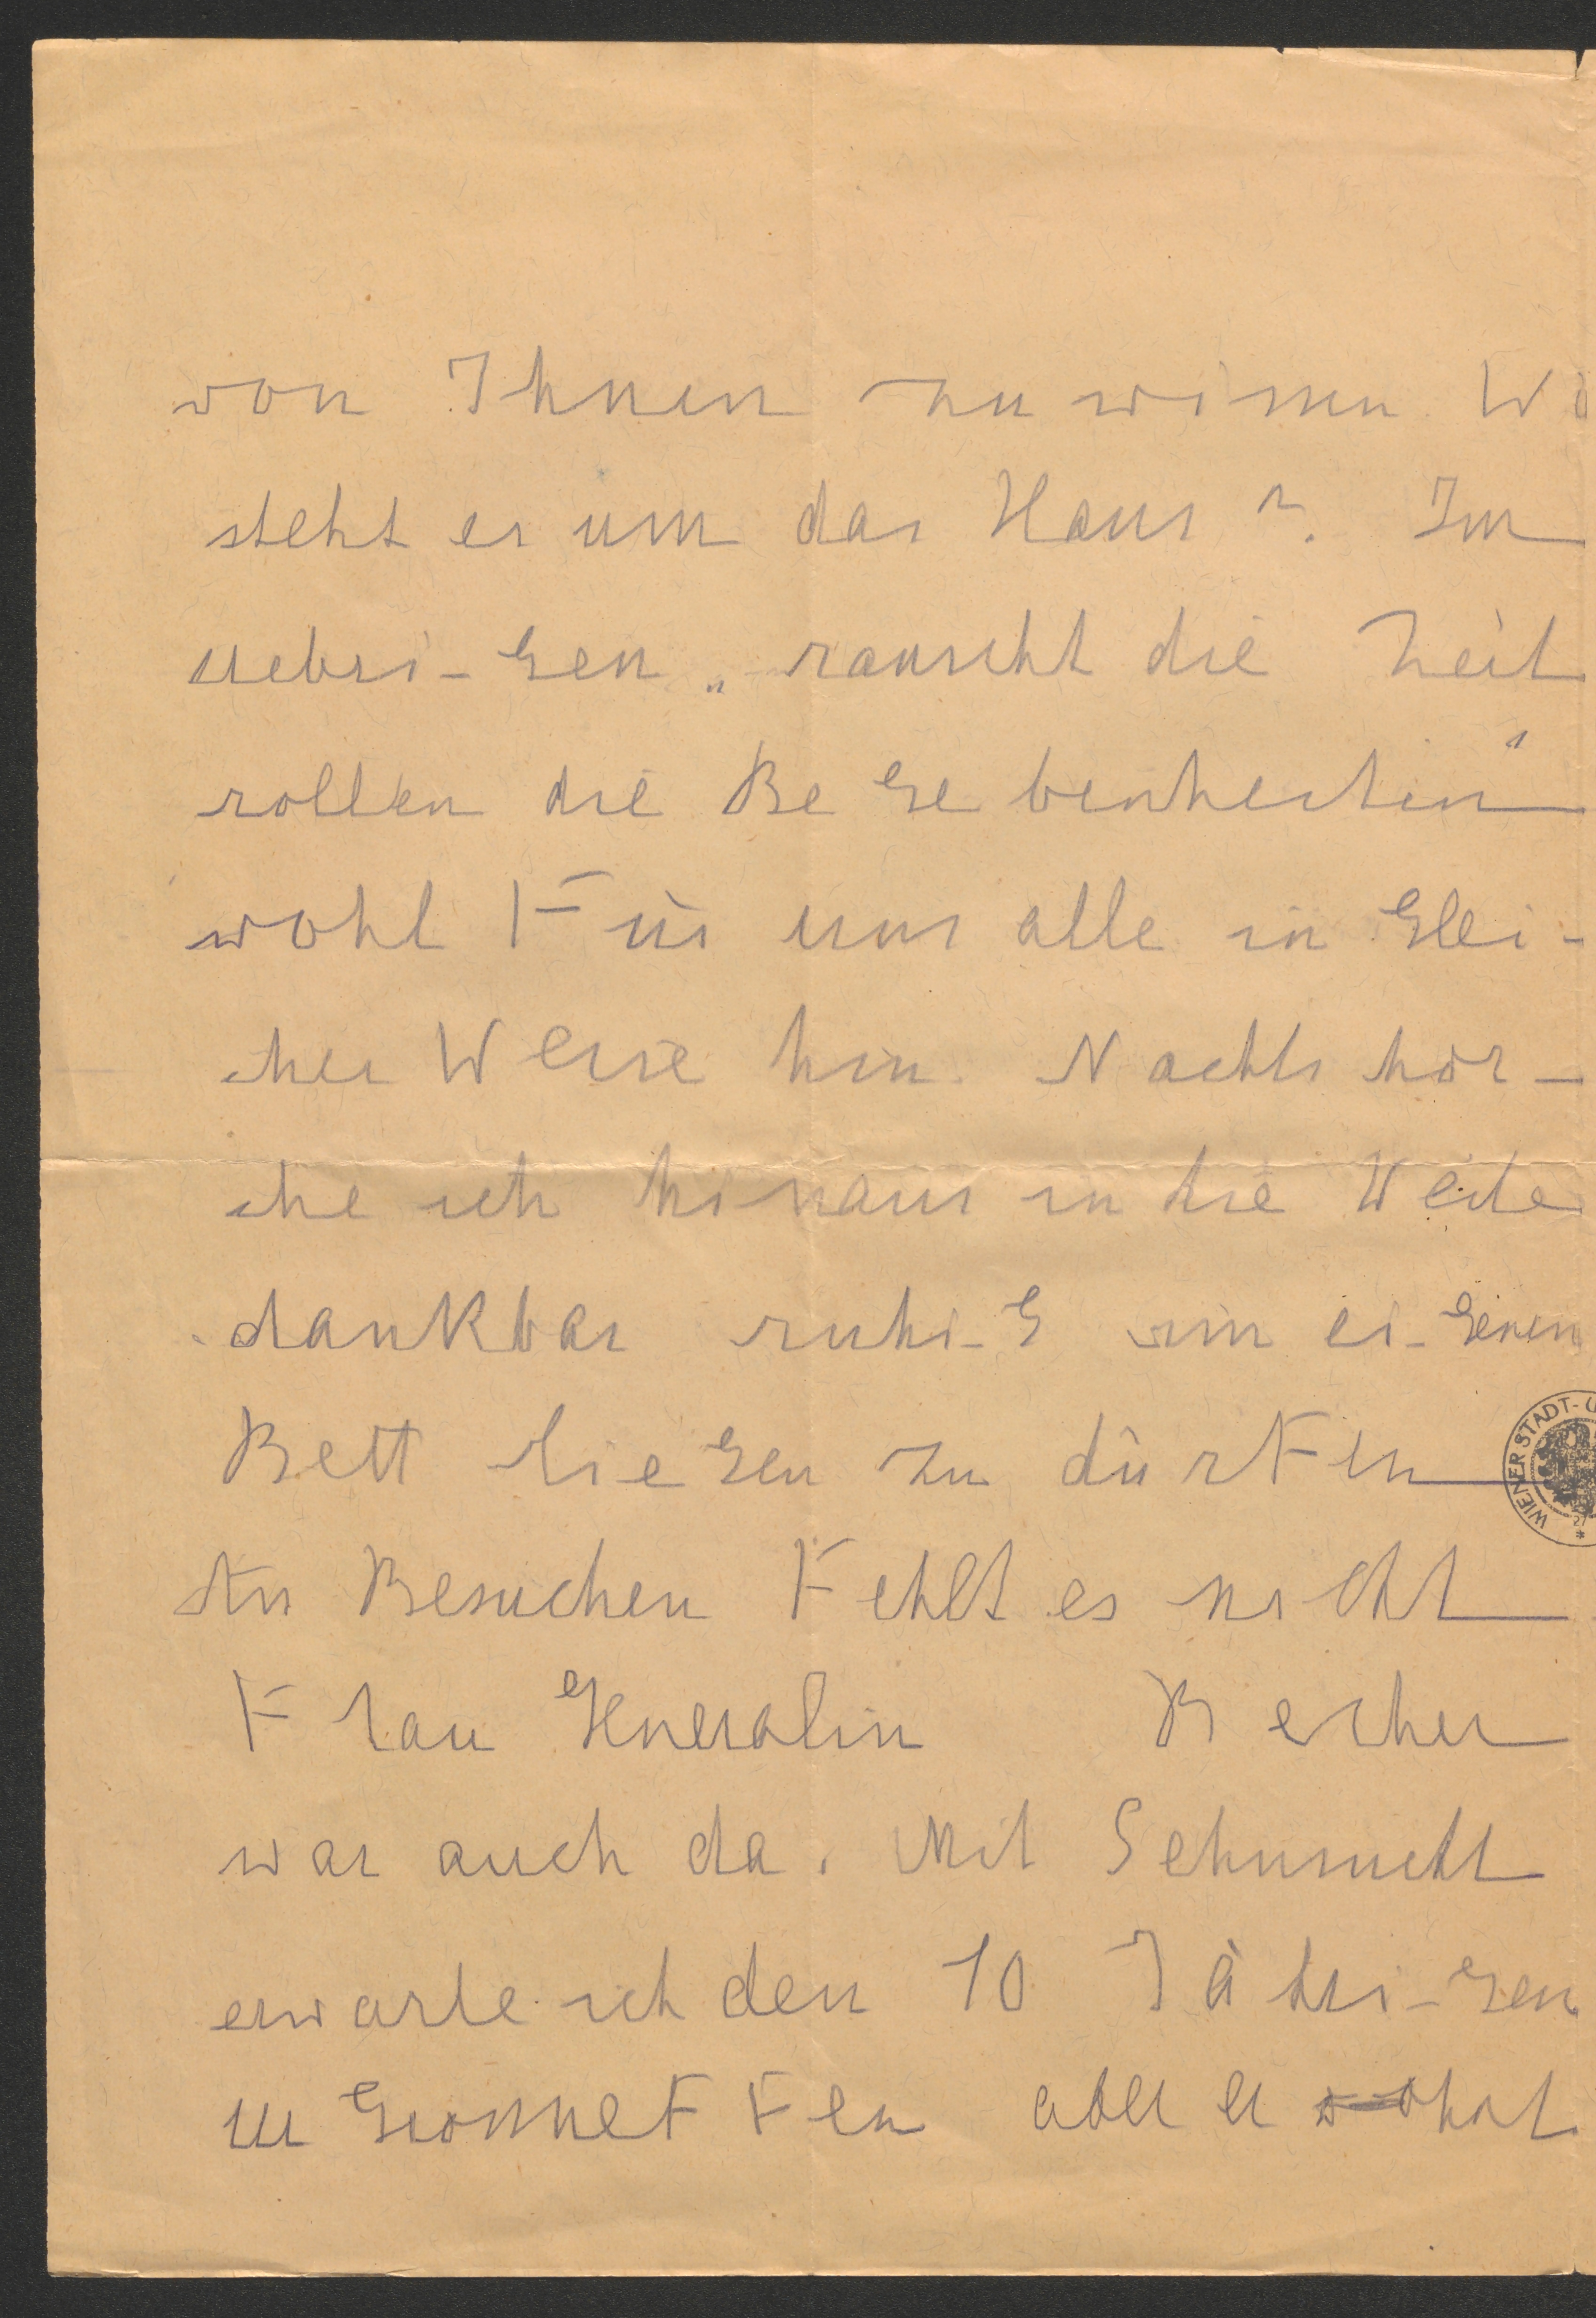 von Ihnen zu wissen. Wi
steht es um das Haus? Im
uebri-gen „rauscht die Zeit
rollen die Begebenheiten"
wohl für uns alle in glei-
cher Weise hin. Nachts hor-
che ich hinaus in die Weite
dankbar ruhi-g im ei-genen
Bett liegen zu dürfen
An Besuchen fehlt es nicht
Frau Generalin Becher
war auch da. Mit Sehnsucht
erwarte ich den 10 Jähri-gen
ur Grossneffen aber er wohnt
WIENER STADT-U